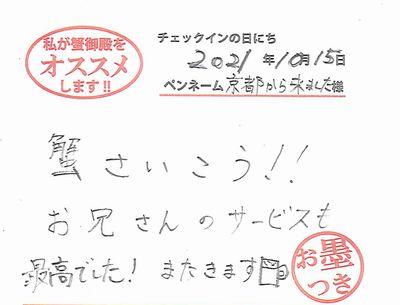 私が蟹御殿を
オススメ
します!!
チェックインの日にち
2021年10月15日
ペンネーム 京都から来ました様
蟹さいこう!!
お兄さんのサービスも
最高でした! またきます
お墨
つき